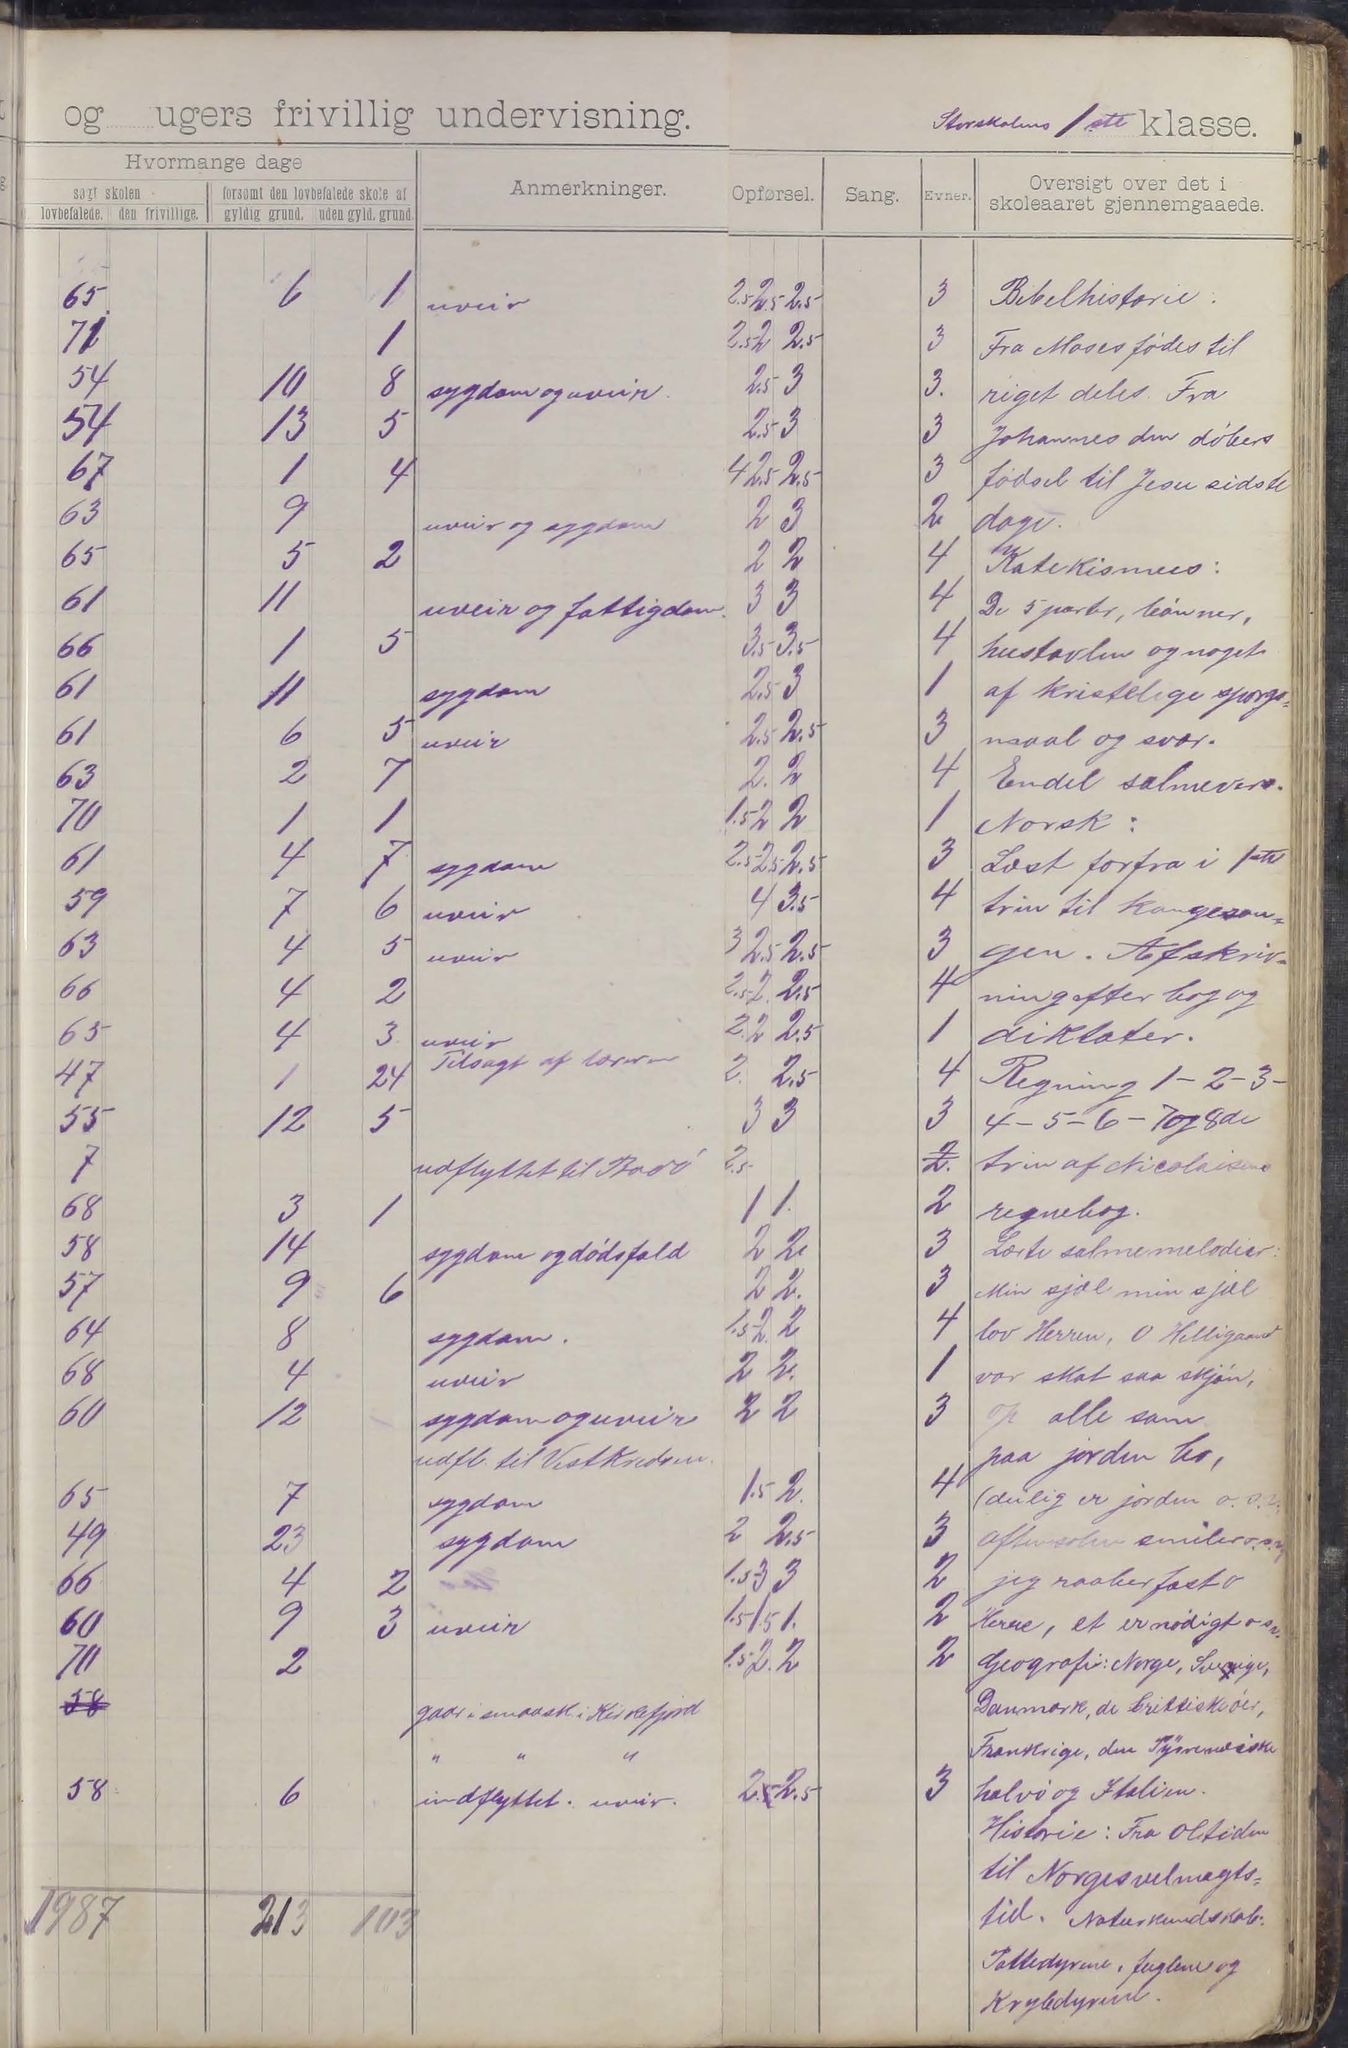 og ugers frivillig undervisning. Storskolens 1ste klasse.
Hvormange dage
søgt skolen forsømt den lovbefalede skole af Anmerkninger. Opførsel. Sang. Evner. Oversigt over det i
lovbefalede. den frivillige. gyldig grund. uden gyld. grund. skoleaaret gjennemgaaede.
65 6 1 uveir 2.5 2.5 2.5 3 Bibelhistorie:
71 1 2.5 2 2.5 3 Fra Moses fødes til
54 10 8 sygdom og uveir. 2.5 3 3. riget deles. Fra
54 13 5 2.5 3 3 Johannes den døbers
67 1 4 4 2.5 2.5 3 fødsel til Jesu sidste
63 9 uveir og sygdom 2 3 2 dage.
65 5 2 2 2 4 Katekismus:
61 11 uveir og fattigdom. 3 3 4 De 5 parter, bønner,
66 1 5 3.5 3.5 4 hustavlen og noget
61 11 sygdom 2.5 3 1 af kristelige spørgs=
61 6 5 uveir 2.5 2.5 3 maal og svar.
63 2 7 2. 2 4 Endel salmevers.
70 1 1 1.5 2 2 1 Norsk:
61 4 7 sygdom 2.5 2.5 2.5 3 Læst forfra i 1ste
59 7 6 uveir 4 3.5 4 trin til kongesan=
63 4 5 uveir 3 2.5 2.5 3 gen. Afskriv=
66 4 2 2.5 2. 2.5 4 ning efter bog og
65 4 3 uveir 2. 2 2.5 1 diktater.
47 1 24 Tilsagt af læreren 2. 2.5 4 Regning 1-2-3-
55 12 5 3 3 3 4-5-6-7 og 8de
7 udflyttet til Bodø 2.5 2. trin af Nicolaisens
68 3 1 1 1. 2 regnebog.
58 14 sygdom og dødsfald 2 2 3 Lærte salmemelodier:
57 9 6 2 2. 3 Min sjæl min sjæl
64 8 sygdom. 1.5 2. 2 4 lov Herren, O Helligaand
68 4 uveir 2 2. 1 vor skat saa skjøn,
60 12 sygdom og uveir 2 2 3 op alle som
udfl. til Vestkredsen. paa jorden bo,
65 7 sygdom 1.5 2. 4 (deilig er jorden o.s.v.
49 23 sygdom 2 2.5 3 aftensolen smiler o.s.v.
66 4 2 1.5 3 3 2 jeg raaber fast o
60 9 3 uveir 1.5 1.5 1. 2 Herre, et er nødigt o.s.v.
70 2 1.5 2. 2 2 Geografi: Norge, Sverige,
58 gaar i smaask. i Kirkefjord Danmark, de brittiske øer,
" " " Frankrige, den Pyrenæiske
58 6 indflyttet. uveir. 2.5 2.5 3 halvø og Italien.
Historie: Fra Oltiden
til Norgesvelmagts=
1987 213 103 tid. Naturkundskab:
Pattedyrene, fuglene og
Krybdyrene.